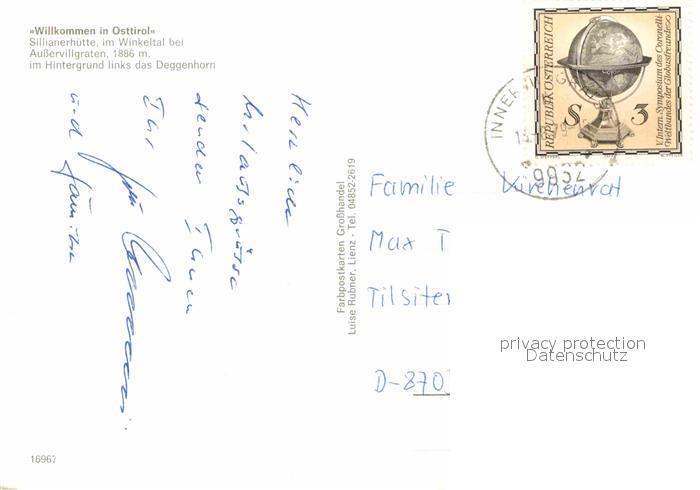 »Willkommen in Osttirol«
Sillianerhütte, im Winkeltal bei
Außervillgraten, 1886 m.
im Hintergrund links das Deggenhorn
Herzliche
Urlaubsgrüsse
senden Ihnen
Ihr
und Familie
16967
Farbpostkarten Großhandel
Luise Rubner, Lienz - Tel. 04852-2619
REPUBLIK ÖSTERREICH
S 3
V. Intern. Symposium des Coronelli-
Weltbundes der Globusfreunde
INNER
9932
Familie Kirchenrat
Max T
Tilsiter
D-870
privacy protection
Datenschutz